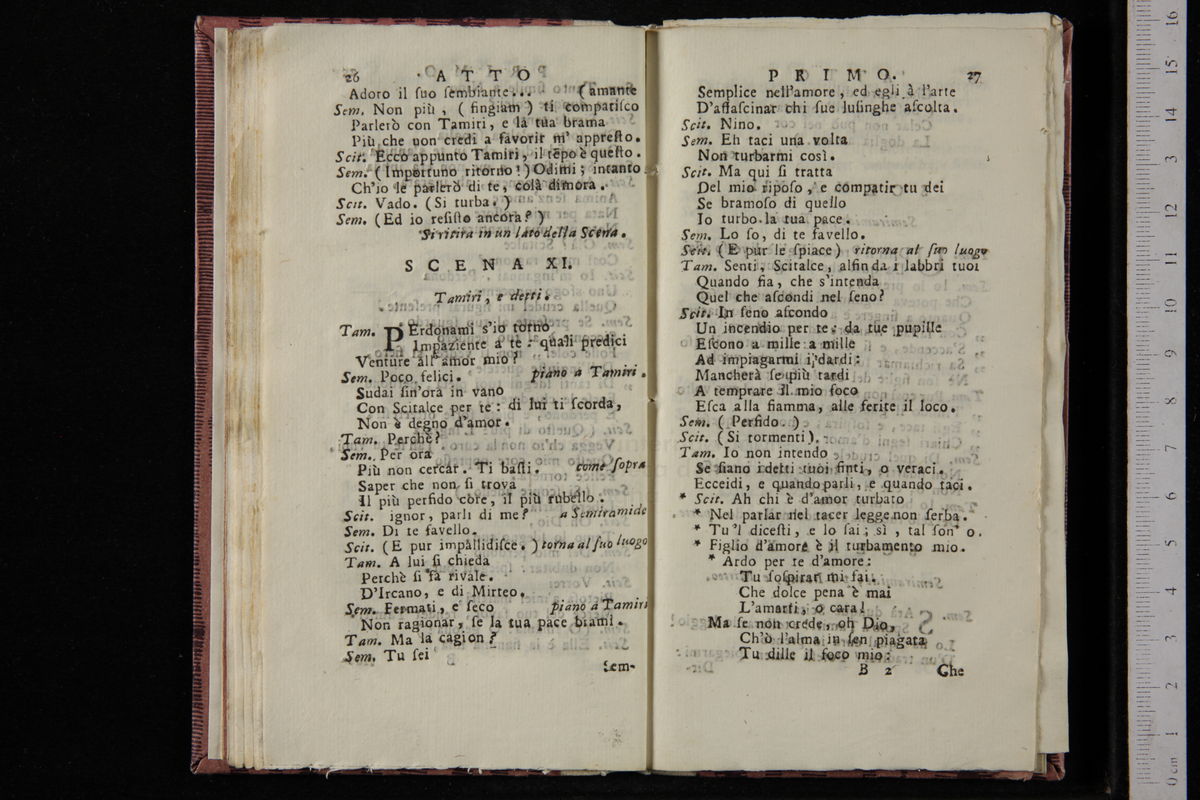 26 ATTO
Adoro il ſuo ſembiante... (amante
Sem. Non più, (fingiam) ti compatiſco
Parlerò con Tamiri, e la tua brama
Più che non credi a favorir m' appreſto.
Scit. Ecco appunto Tamiri, il tēpo è queſto.
Sem. (Importuno ritorno!) Odimi; intanto
Ch'io le parlerò di te, colà dimora.
Scit. Vado. (Si turba.)
Sem. (Ed io reſiſto ancora?)
Si ritira in un lato della Scena.
SCENA XI.
Tamiri, e detti.
Tam. PErdonami s'io torno
Impaziente a te: quali predici
Venture all' amor mio?
Sem. Poco felici. piano a Tamiri.
Sudai ſin'ora in vano
Con Scitalce per te: di lui ti ſcorda,
Non è degno d'amor.
Tam. Perchè?
Sem. Per ora
Più non cercar. Ti baſti. come ſopra
Saper che non ſi trova
Il più perfido core, il più rubello.
Scit. ignor, parli di me? a Semiramide
Sem. Di te favello.
Scit. (E pur impallidiſce.) torna al ſuo luogo
Tam. A lui ſi chieda
Perchè ſi fa rivale.
D'Ircano, e di Mirteo.
Sem. Fermati, e ſeco piano a Tamiri
Non ragionar, ſe la tua pace brami.
Tam. Ma la cagion?
Sem. Tu ſei
Sem-
PRIMO. 27
Semplice nell'amore, ed egli à l'arte
D'affaſcinar chi ſue luſinghe aſcolta.
Scit. Nino.
Sem. Eh taci una volta
Non turbarmi così.
Scit. Ma qui ſi tratta
Del mio ripoſo, e compatir tu dei
Se bramoſo di quello
Io turbo la tua pace.
Sem. Lo ſo, di te favello.
Scit. (E pur le ſpiace) ritorna al ſuo luogo
Tam. Senti, Scitalce, alfin da i labbri tuoi
Quando fia, che s'intenda
Quel che aſcondi nel ſeno?
Scit. In ſeno aſcondo
Un incendio per te: da tue pupille
Eſcono a mille a mille
Ad impiagarmi i dardi:
Mancherà ſe più tardi
A temprare il mio foco
Eſca alla fiamma, alle ferite il loco.
Sem. (Perfido.)
Scit. (Si tormenti).
Tam. Io non intendo
Se ſiano i detti tuoi finti, o veraci.
Ecceidi, e quando parli, e quando taci.
* Scit. Ah chi è d'amor turbato
* Nel parlar nel tacer legge non ſerba.
* Tu 'l diceſti, e lo ſai; sì, tal ſon' o.
* Figlio d'amore è il turbamento mio.
* Ardo per te d'amore:
Tu ſoſpirar mi fai:
Che dolce pena è mai
L'amarti, o cara!
Ma ſe non crede, oh Dio,
Ch'ò l'alma in ſen piagata
Tu dille il foco mio:
B 2 Che